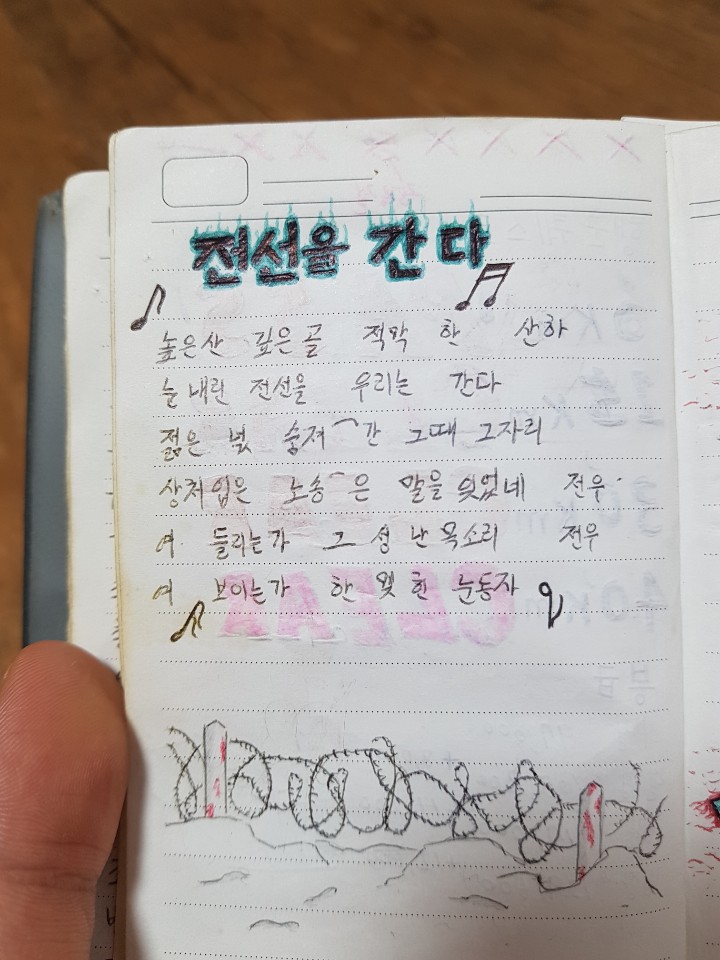 전선을 간다
높은산 깊은골 적막 한 산하
눈내린 전선을 우리는 간다
젊은 넋 숨져 간 그때 그자리
상처입은 노송 은 말을 잊었네 전우
여 들리는가 그 성 난 목소리 전우
여 보이는가 한 맺 힌 눈동자